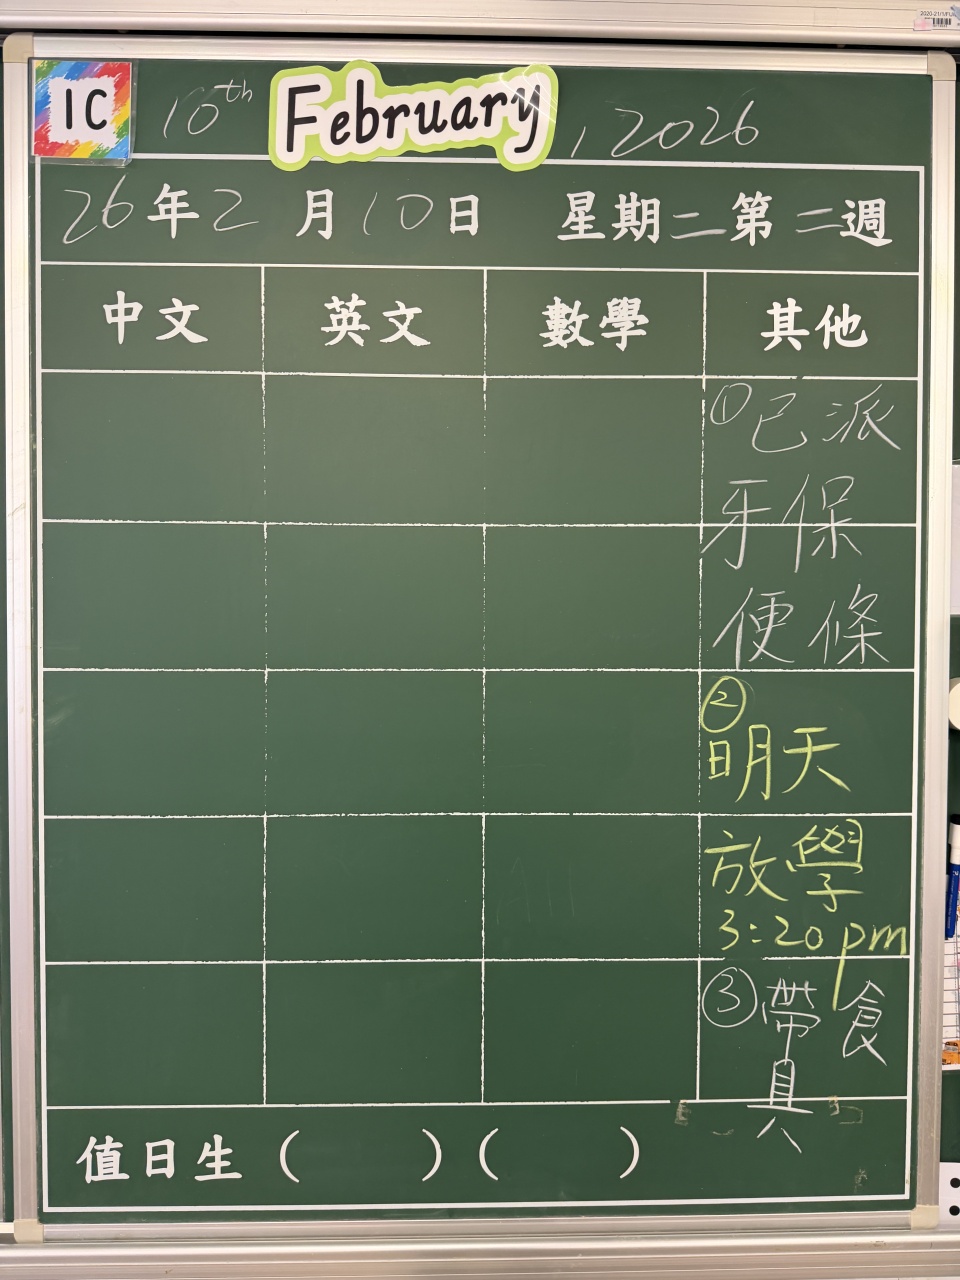 1C 10th February, 2026
26年2月10日 星期二第二週
中文 英文 數學 其他
①已派
牙保
便條
②
明天
放學
3:20pm
③帶食
具
值日生 ( ) ( )